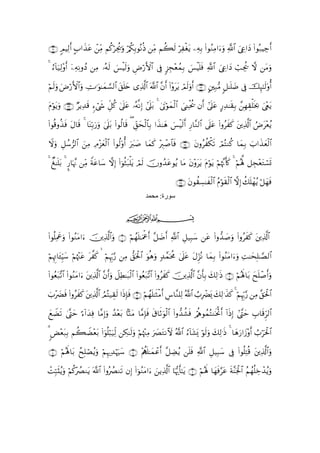 أَجِيبُوا۟ دَاعِىَ ٱللَّهِ وَءَامِنُوا۟ بِهِۦ يَغْفِرْ لَكُم مِّن ذُنُوبِكُمْ وَيُجِرْكُم مِّنْ عَذَابٍ أَلِيمٍ ﴿٣١﴾
وَمَن لَّا يُجِبْ دَاعِىَ ٱللَّهِ فَلَيْسَ بِمُعْجِزٍ فِى ٱلْأَرْضِ وَلَيْسَ لَهُۥ مِن دُونِهِۦٓ أَوْلِيَآءُ ۚ
أُو۟لَٰٓئِكَ فِى ضَلَٰلٍ مُّبِينٍ ﴿٣٢﴾ أَوَلَمْ يَرَوْا۟ أَنَّ ٱللَّهَ ٱلَّذِى خَلَقَ ٱلسَّمَٰوَٰتِ وَٱلْأَرْضَ وَلَمْ
يَعْىَ بِخَلْقِهِنَّ بِقَٰدِرٍ عَلَىٰٓ أَن يُحْۦِىَ ٱلْمَوْتَىٰ ۚ بَلَىٰٓ إِنَّهُۥ عَلَىٰ كُلِّ شَىْءٍ قَدِيرٌ ﴿٣٣﴾ وَيَوْمَ
يُعْرَضُ ٱلَّذِينَ كَفَرُوا۟ عَلَى ٱلنَّارِ أَلَيْسَ هَٰذَا بِٱلْحَقِّ ۖ قَالُوا۟ بَلَىٰ وَرَبِّنَا ۚ قَالَ فَذُوقُوا۟
ٱلْعَذَابَ بِمَا كُنتُمْ تَكْفُرُونَ ﴿٣٤﴾ فَٱصْبِرْ كَمَا صَبَرَ أُو۟لُوا۟ ٱلْعَزْمِ مِنَ ٱلرُّسُلِ وَلَا
تَسْتَعْجِل لَّهُمْ ۚ كَأَنَّهُمْ يَوْمَ يَرَوْنَ مَا يُوعَدُونَ لَمْ يَلْبَثُوٓا۟ إِلَّا سَاعَةً مِّن نَّهَارٍۭ ۚ بَلَٰغٌ ۚ
فَهَلْ يُهْلَكُ إِلَّا ٱلْقَوْمُ ٱلْفَٰسِقُونَ ﴿٣٥﴾
سورة: محمد
بِسْمِ ٱللَّهِ ٱلرَّحْمَٰنِ ٱلرَّحِيمِ
ٱلَّذِينَ كَفَرُوا۟ وَصَدُّوا۟ عَن سَبِيلِ ٱللَّهِ أَضَلَّ أَعْمَٰلَهُمْ ﴿١﴾ وَٱلَّذِينَ ءَامَنُوا۟ وَعَمِلُوا۟
ٱلصَّٰلِحَٰتِ وَءَامَنُوا۟ بِمَا نُزِّلَ عَلَىٰ مُحَمَّدٍ وَهُوَ ٱلْحَقُّ مِن رَّبِّهِمْ ۙ كَفَّرَ عَنْهُمْ سَيِّـَٔاتِهِمْ
وَأَصْلَحَ بَالَهُمْ ﴿٢﴾ ذَٰلِكَ بِأَنَّ ٱلَّذِينَ كَفَرُوا۟ ٱتَّبَعُوا۟ ٱلْبَٰطِلَ وَأَنَّ ٱلَّذِينَ ءَامَنُوا۟ ٱتَّبَعُوا۟
ٱلْحَقَّ مِن رَّبِّهِمْ ۚ كَذَٰلِكَ يَضْرِبُ ٱللَّهُ لِلنَّاسِ أَمْثَٰلَهُمْ ﴿٣﴾ فَإِذَا لَقِيتُمُ ٱلَّذِينَ كَفَرُوا۟ فَضَرْبَ
ٱلرِّقَابِ حَتَّىٰٓ إِذَآ أَثْخَنتُمُوهُمْ فَشُدُّوا۟ ٱلْوَثَاقَ فَإِمَّا مَنًّۢا بَعْدُ وَإِمَّا فِدَآءً حَتَّىٰ تَضَعَ
ٱلْحَرْبُ أَوْزَارَهَا ۚ ذَٰلِكَ وَلَوْ يَشَآءُ ٱللَّهُ لَٱنتَصَرَ مِنْهُمْ وَلَٰكِن لِّيَبْلُوَا۟ بَعْضَكُم بِبَعْضٍ ۗ
وَٱلَّذِينَ قُتِلُوا۟ فِى سَبِيلِ ٱللَّهِ فَلَن يُضِلَّ أَعْمَٰلَهُمْ ﴿٤﴾ سَيَهْدِيهِمْ وَيُصْلِحُ بَالَهُمْ ﴿٥﴾
وَيُدْخِلُهُمُ ٱلْجَنَّةَ عَرَّفَهَا لَهُمْ ﴿٦﴾ يَٰٓأَيُّهَا ٱلَّذِينَ ءَامَنُوٓا۟ إِن تَنصُرُوا۟ ٱللَّهَ يَنصُرْكُمْ وَيُثَبِّتْ